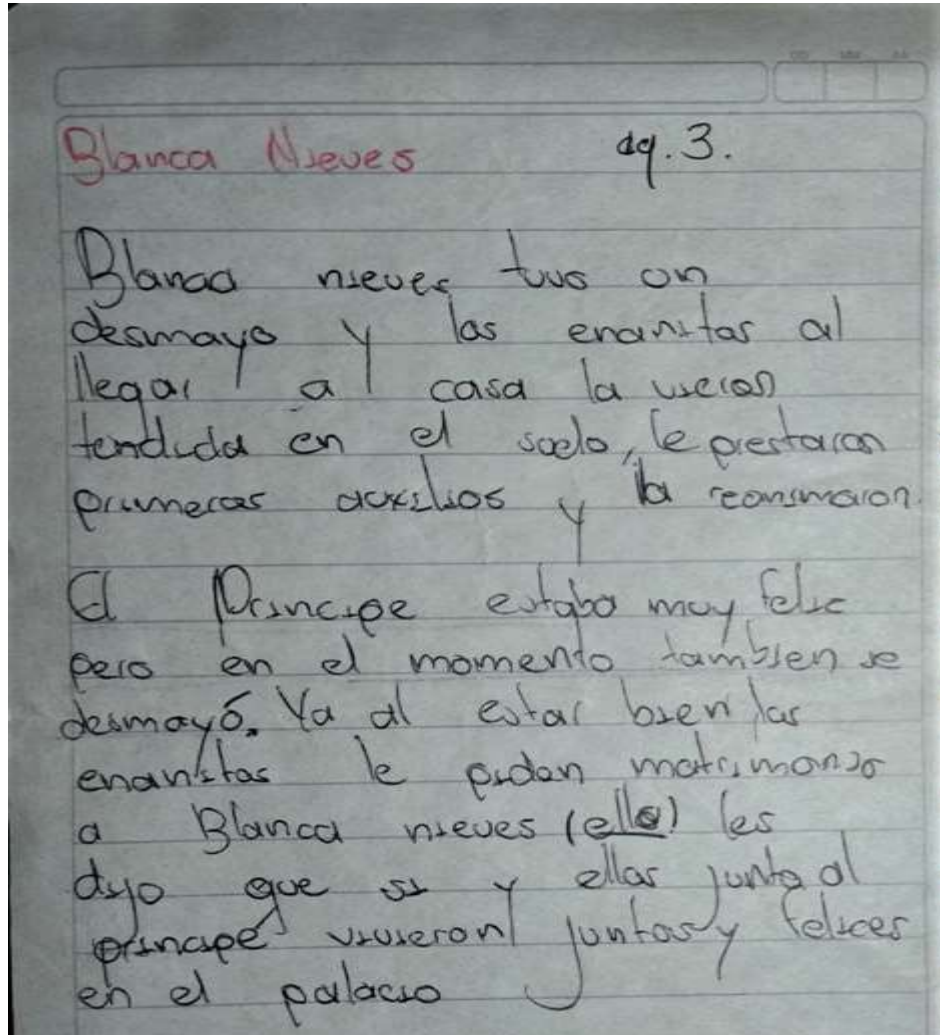 Blanca Nieves dq. 3.
Blanca nieves tuvo un
desmayo y las enanitas al
llegar a casa la vieron
tendida en el suelo, le prestaron
primeras auxilios y la reanimaron.
El Principe estaba muy feliz
pero en el momento tambien se
desmayó. Ya al estar bien las
enanitas le pidan matrimonio
a Blanca nieves (ella) les
dijo que si y ellas junto al
principe vivieron juntas y felices
en el palacio